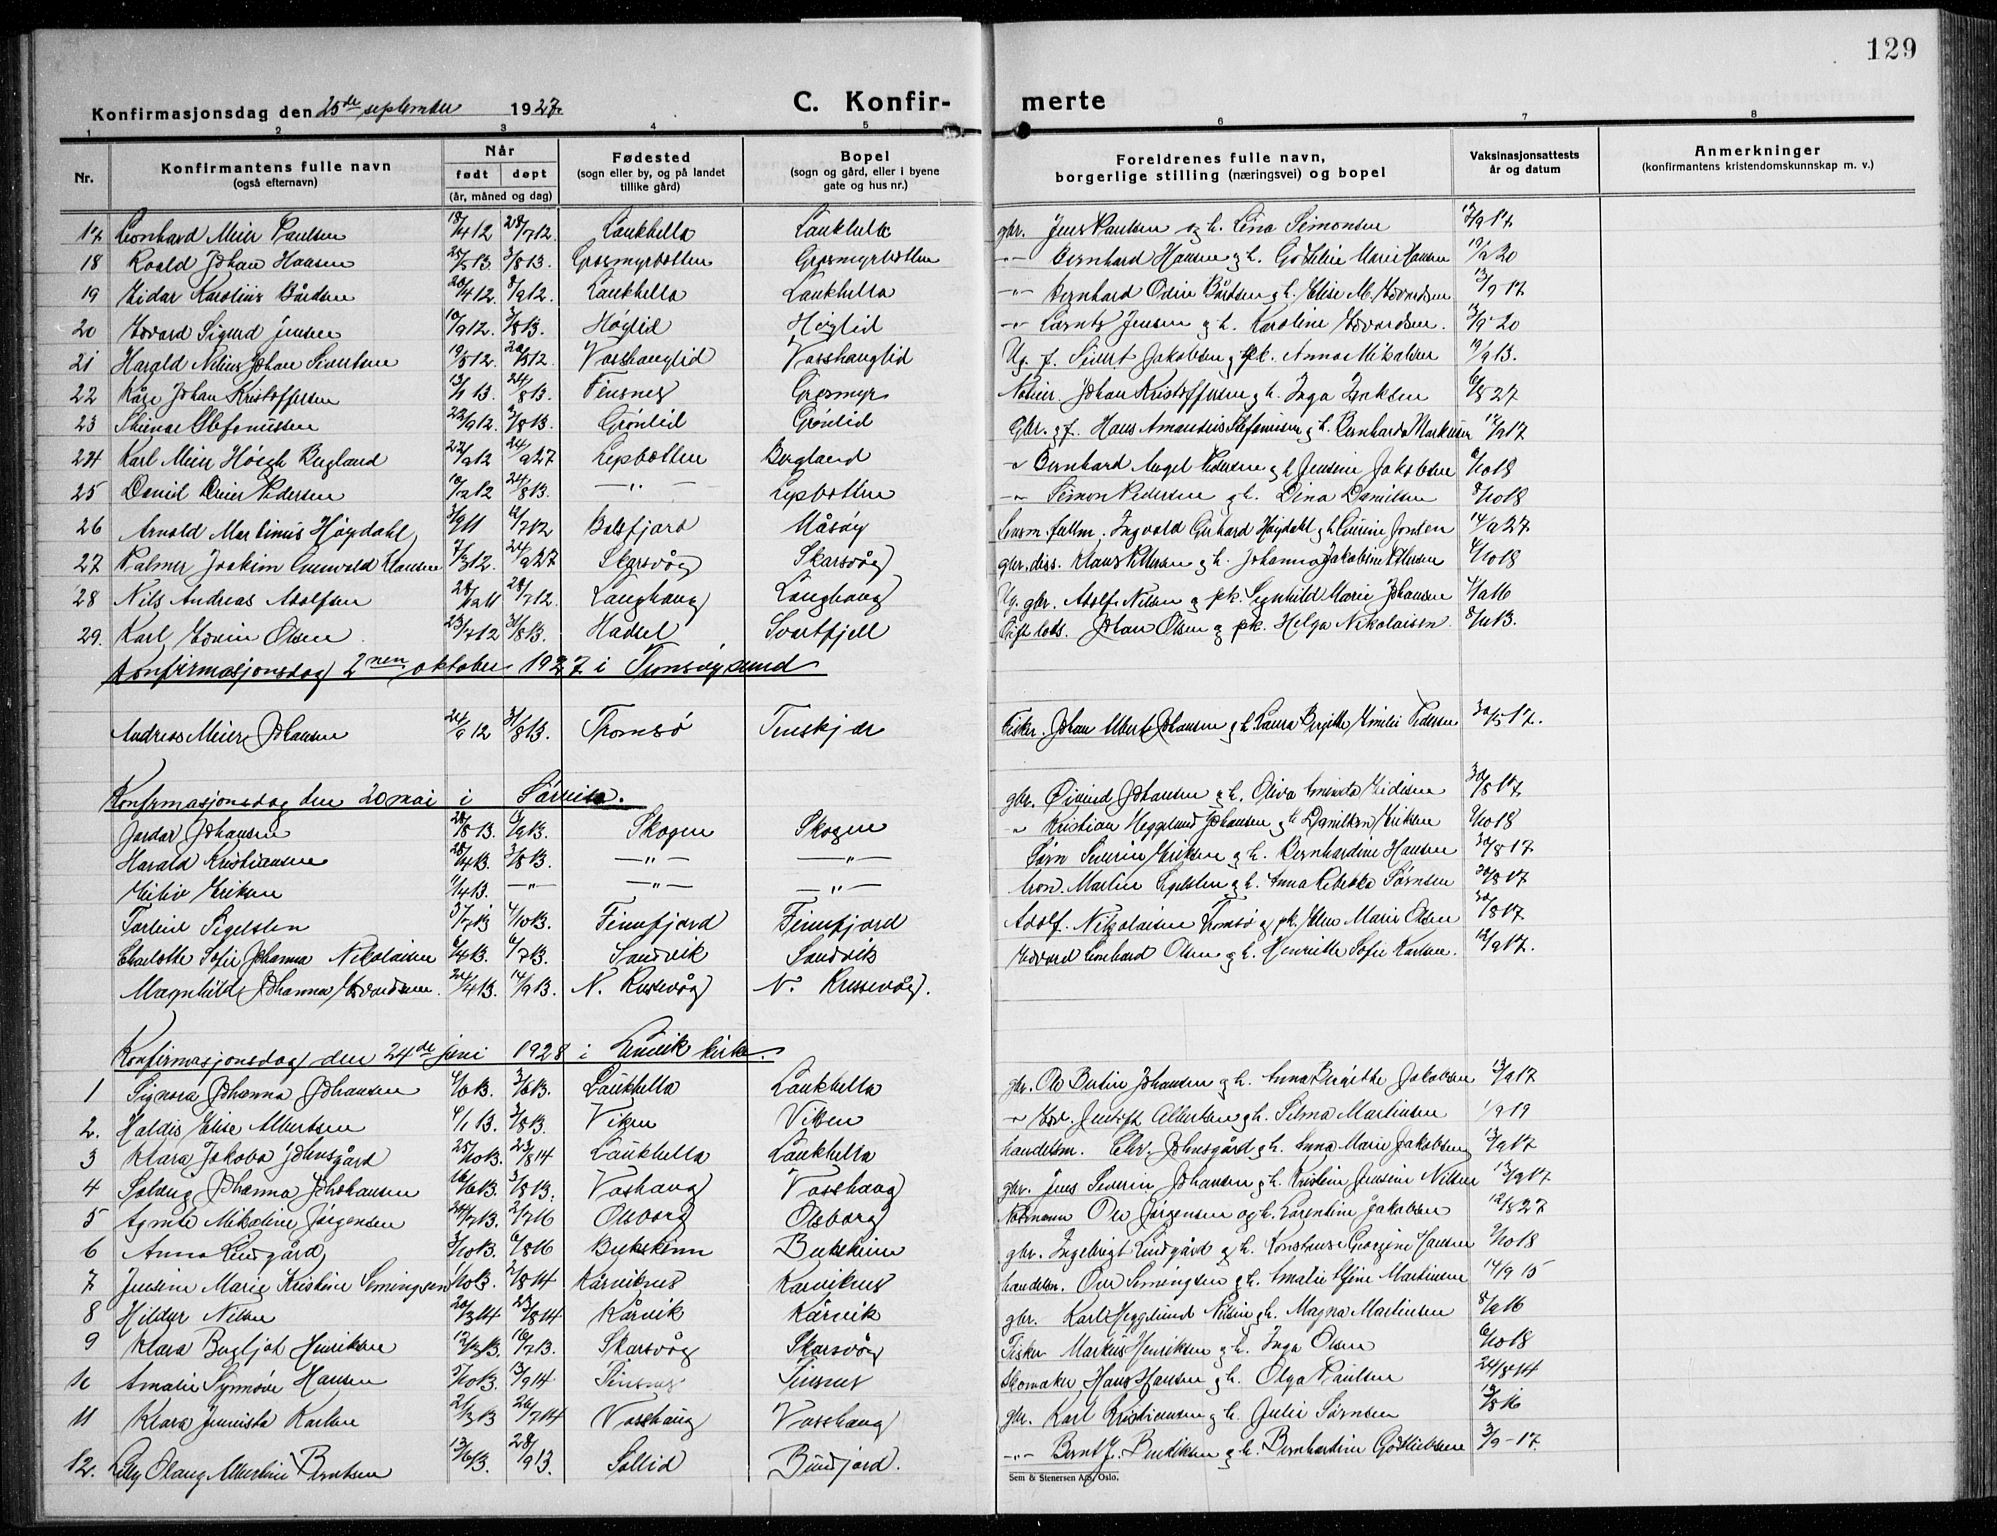 129
Konfirmasjonsdag den 25de september 1927. C. Konfir- merte
1 2 3 4 5 6 7 8
Nr. Konfirmantens fulle navn (også efternavn) Når født døpt (år, måned og dag) Fødested (sogn eller by, og på landet tillike gård) Bopel (sogn og gård, eller i byene gate og hus nr.) Foreldrenes fulle navn, borgerlige stilling (næringsvei) og bopel Vaksinasjonsattests år og datum Anmerkninger (konfirmantens kristendomskunnskap m. v.)
17 Leonhard Meier Paulsen 18/4 12 28/7 12. Laukhella Laukhella gbr. Jens Paulsen og h. Lina Simonsen 17/9 17.
18 Roald Johan Hansen 25/3 13. 3/8 13. Grasmyrbotten Grasmyrbotten -"- Bernhard Hansen og h. Gotfeline Marie Hansen 19/9 20
19 Eidar Karolius Bårdsen 28/4 12. 8/9 12. Laukhella Laukhella -"- Bernhard Odin Bårdsen og h. Elise M. Edvardsen 13/9 17
20 Edvard Sigurd Jensen 10/9 12. 3/8 13. Høglid Høglid -"- Lorntz Jensen og h. Karoline Edvardsen. 13/9 20
21 Harald Nelius Johan Sivertsen 19/5 12. 20/5 12 Vasshauglid Vasshauglid Ug. f. Sivert Jakobsen og pk. Anna Mikalsen 19/9 13.
22 Kåre Johan Kristoffersen 13/1 13. 24/8 13. Finsnes Grasmyr Johan Kristoffersen og h. Inga Eriksen 6/5 27
23 Steinar Stefanussen 22/9 12. 3/8 13. Grønlid Grønlid Gbr. og f. Hans Amandus Stefanusen og h. Bernharda Markusen 17/9 17
24 Karl Meier Høegh Bergland 22/9 12 24/9 27 Lepbotten Bergland -"- Bernhard Angel Pedersen og h. Jensine Jakobsen 6/10 18
25 Daniel Peder Pedersen 10/12 12 24/8 13. -"- Lepbotten -"- Simon Pedersen og h. Dina Danielsen 8/10 18
26 Arnold Martinius Høgdahl 3/9 11 6/7 12 Balsfjord Måsøy Ingvald Gerhard Høgdahl og h. Jonsen 14/9 27
27 Palmer Joakim Gunvald Klausen 7/3 12. 24/9 27 Skarsvåg Skarsvåg gbr. diss. Klaus Pettersen og h. Johanna Jakobine Pettersen 4/10 18
28 Nils Andreas Adolfsen 28/12 11 28/7 12. Langhaug Langhaug Ug. gbr. Adolf Nilsen og pk. Signhild Marie Johansen 4/9 16
29. Karl Edvin Olsen 23/7 12 31/8 13. Hadsel Svartfjell Gift lods. Johan Olsen og pk. Helga Nikolaisen 8/11 13.
Konfirmasjonsdag 2nen oktober 1927 i Tromsøysund
Andreas Meier Johansen 24/9 12 31/8 13. Thomsø Tennskjær Fisker. Johan Albert Johansen og h. Laura Birgitte Emilie Pedersen 30/5 17.
Konfirmasjonsdag den 20 mai i Sørreisa.
Jardar Johansen 28/8 13. 5/9 13. Skogen Skogen gbr. Øivind Johansen og h. Oliva Eminda Eidisen 30/8 17
Harald Kristiansen 28/4 13. 3/8 13. -"- -"- -"- Kristian Heggelund Johansen og h. Danilken Eriksen 9/10 18
Eiliv Eriksen 11/4 13. -"- -"- -"- Sørn Severin Eriksen og h. Bernhardine Hansen 30/8 17
Torleif Sigelsten 3/7 13 4/10 13. Finnfjord Finnfjord Martin Egelsten og h. Anna Rebekka Sørnsen 30/8 17
Charlotte Sofie Johanna Nikolaisen 6/4 13. 6/7 13. Sandvik Sandvik Adolf. Nikolaisen Tromsø og pk. Ellen Marie Olsen 30/8 17
Magnhild Johanna Edvardsen. 24/4 13. 14/9 13. N. Russevåg N. Russevåg. Edvard Leonhard Olsen og h. Henriette Sofie Karlsen. 12/9 17.
Konfirmasjonsdag den 24de juni 1928 i Lenvik kirke.
1 Signora Johanna Johansen 4/6 13. 3/6 13. Laukhella Laukhella gbr. Ole Bertin Johansen og h. Anna Birgitte Jakobsen 13/9 17
2. Haldis Elise Albertsen 4/1 13. 3/8 13. Viken Viken -"- Edv. Jentoft Albertsen og h. Selma Martinsen 1/9 19
3 Klara Jakoba Johnsgård 25/10 13. 23/8 14 Laukhella Laukhella handelsm. Chr. Johnsgård og h. Anna Marie Jakobsen 13/9 17
4 Solaug Johanna Johansen 16/6 13. 3/8 13. Vashaug Vasshaug gbr. Jens Severin Johansen og h. Kristine Jensine Nilsen 13/9 17
5 Agnete Mikaline Jørgensen 20/7 13. 2/7 16 Olsborg Olsborg Ole Jørgensen og h. Lorentine Jakobsen 12/8 27
6 Anna Lindgård 3/10 13. 6/8 16 Bukskinn Bukskinn gbr. Ingebrigt Lindgård og h. Konstanse Georgine Hansen 9/10 18
7 Jensine Marie Kristine Semingsen 1/10 13. 2/8 14 Kårviknes Karviknes handelsm. Ove Semingsen og h. Amalie Martinsen 14/9 15
8 Hildur Nilsen 20/3 14 23/8 14 Kårvik Kårvik gbr. Karl Heggelund Nilsen og h. Magna Martinsen 8/9 16
9 Klara Bergljot Henriksen 12/3 13. 16/7 13. Skarsvåg Skarsvåg Fisker Markus Henriksen og h. Inga Olsen 6/10 18
10 Amalie Synnøve Hansen 5/10 13. 13/9 14 Finsnes Finsnes Skomaker Hans Hansen og h. Olga Paulsen 24/8 14
11 Klara Jennista Karlsen 21/3 13 26/7 14 Vasshaug Vasshaug gbr. Karl Kristiansen og h. Julie Sørnsen 19/8 16
12. Lilly Olaug Albertine Berntsen 13/6 13. 28/9 13. Sollid Bundjord. -"- Bernt J. Bendiksen og h. Bernhardine Gotliebsen 3/9-17.
Sem & Stenersen A/S, Oslo.